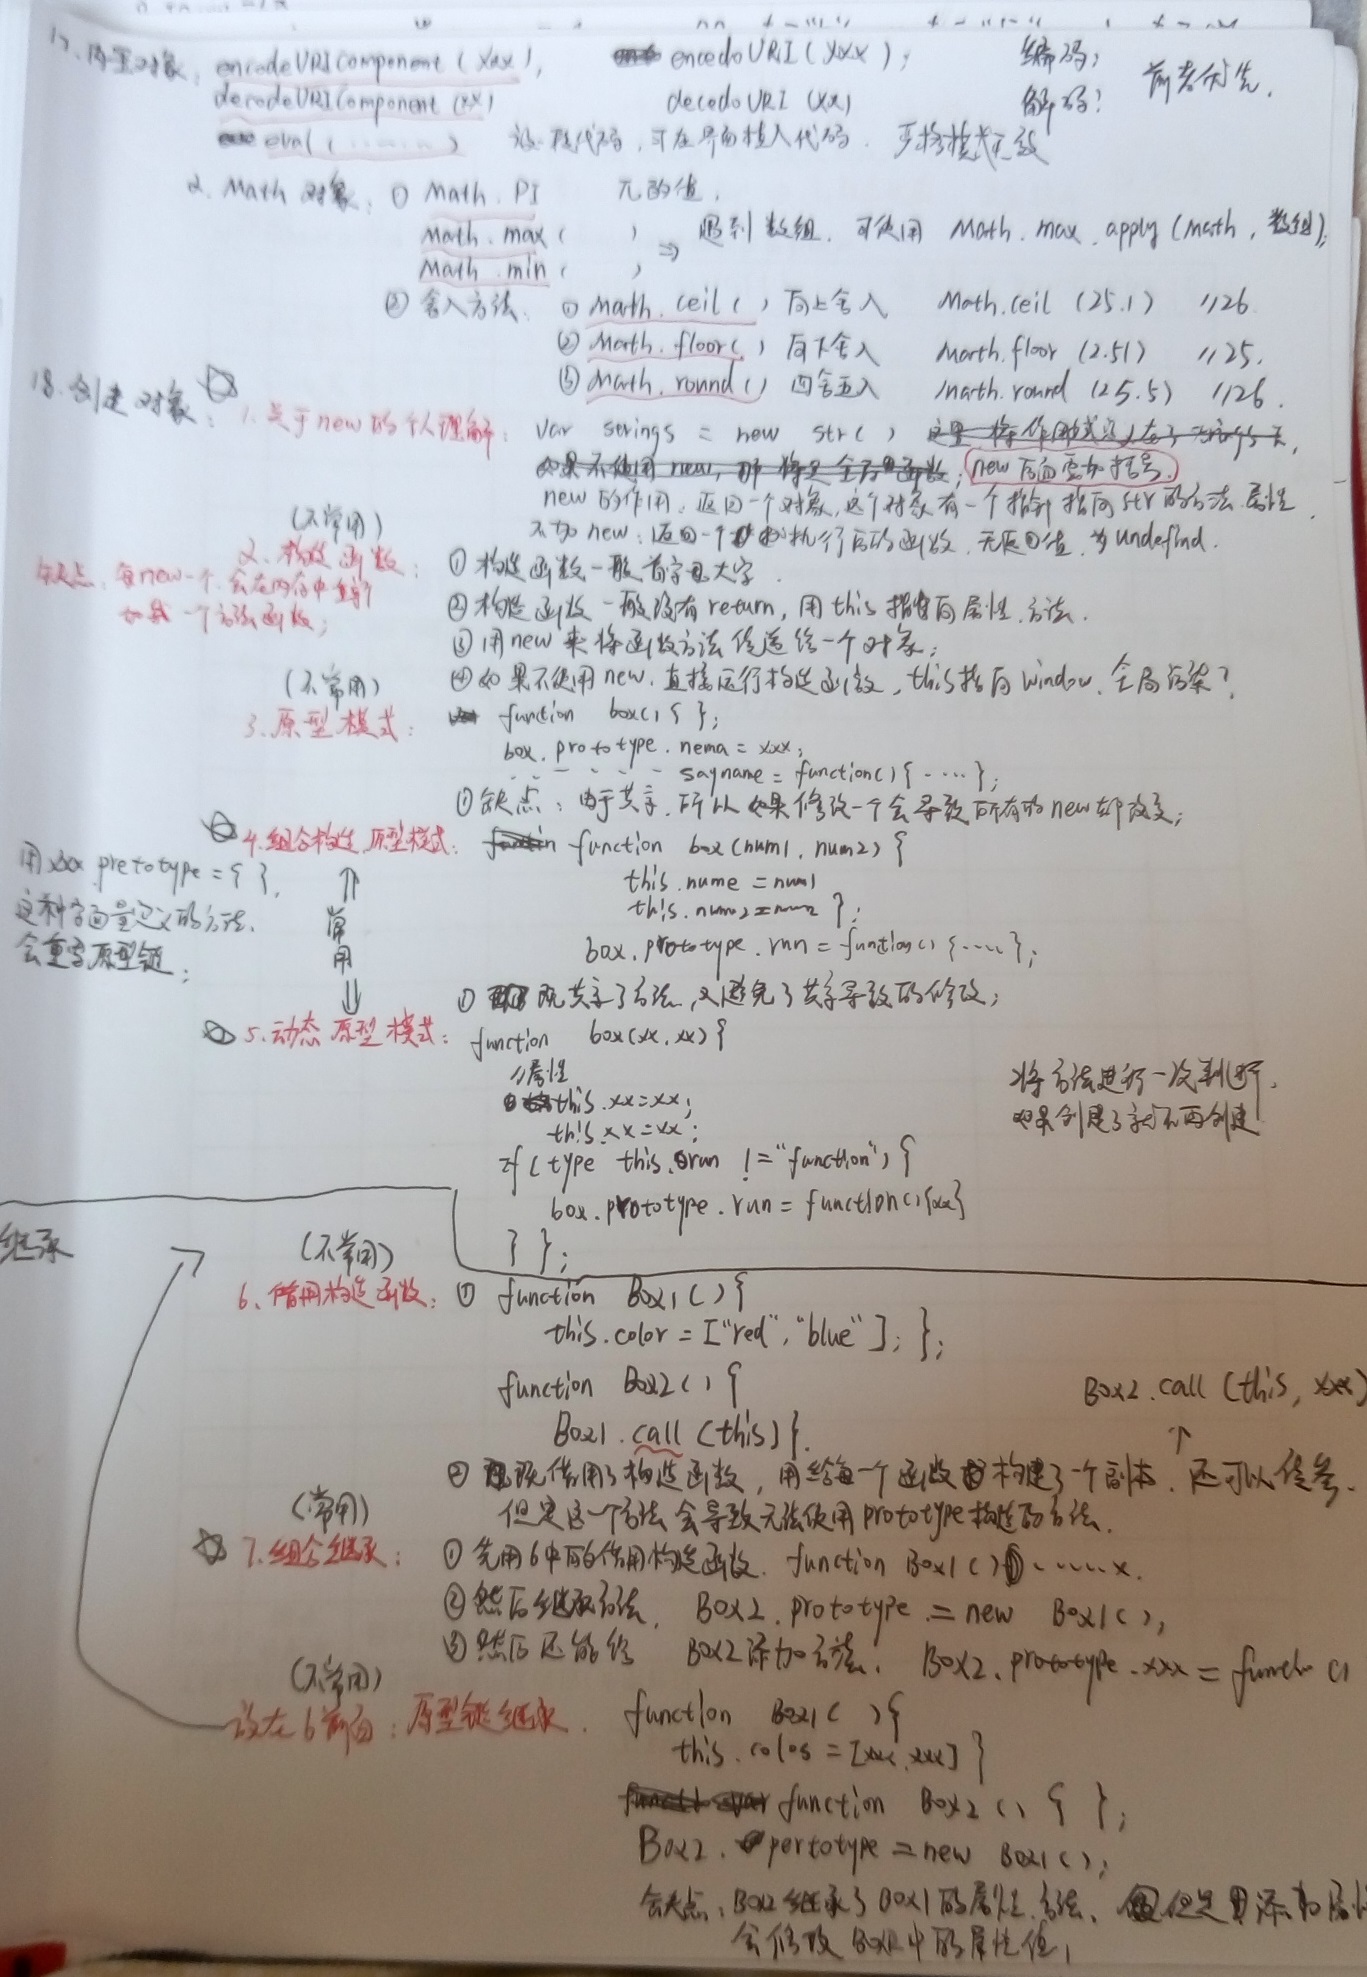 17. 内置对象: encodeURIComponent (xxx), encodoURI (xxx); 编码;
decodeURIComponent (xx) decodoURI (xx) 解码; 前者优先.
eval (......) 代码, 可在界面植入代码. 严格模式无效
2. Math 对象: ① Math. PI 兀的值,
Math. max ( ) ⇒ 遇到数组. 可使用 Math. max. apply (math, 数组);
Math. min ( )
② 舍入方法: ① Math. ceil ( ) 向上舍入 Math.ceil (25.1) //26.
② Math. floor( ) 向下舍入 Math.floor (2.51) //25.
③ Math. round ( ) 四舍五入 math.round (25.5) //26.
18. 创建对象: 1. 关于new的个人理解: var strings = new str ( )
new 后面需加括号.
new 的作用: 返回一个对象, 这个对象有一个指针指向str的方法.属性.
不加 new: 返回一个执行后的函数, 无返回值, 为undefind.
(不常用)
2. 构造函数: ① 构造函数一般首字母大字.
缺点: 每new一个, 会在内存中
一个方法函数;
② 构造函数一般没有return, 用this指向属性.方法.
③ 用new来将函数方法传送给一个对象;
④ 如果不使用new. 直接运行构造函数, this指向window. 全局污染?
(不常用)
3. 原型模式: function box() { };
box. prototype. nema = xxx;
sayname = function() { .... };
① 缺点: 由于共享, 所以如果修改一个会导致所有的new都改变;
4. 组合构造.原型模式: function box (num1, num2) {
this. nume = num1
this. num2 = num2 };
box. prototype. run = function() { .... };
用xxx pretotype = { },
这种字面量定义的方法.
会重写原型链;
常用
① 既共享了方法, 又避免了共享导致的修改;
5. 动态原型模式: function box(xx, xx) {
//属性
this. xx = xx;
this. xx = xx;
if ( type this. run != "function") {
box. prototype. run = function() {xx}
} };
将方法进行一次判断,
如果创建了就不再创建
继承
(不常用)
6. 借用构造函数: ① function Box1 ( ) {
this. color = ["red", "blue" ]; };
function Box2 ( ) {
Box1. call (this) }.
Box2. call (this, xxx)
② 既借用了构造函数, 用给每一个函数构建了一个副本. 还可以传参.
但是这一个方法会导致无法使用prototype构造的方法.
(常用)
7. 组合继承: ① 先用6中的借用构造函数. function Box1 ( ) ...... x.
② 然后继承方法, Box2. prototype = new Box1 ( ),
③ 然后还能给 Box2添加方法. Box2. prototype. xxx = functio ()
(不常用)
放在6前面: 原型链继承. function Box1 ( ) {
this. colos = [xxx, xxx] }
function Box2 ( ) { };
Box2. pertotype = new Box1 ( );
缺点: Box2继承了Box1的属性.方法, 但是添加属性
会修改 Box1中的属性值;